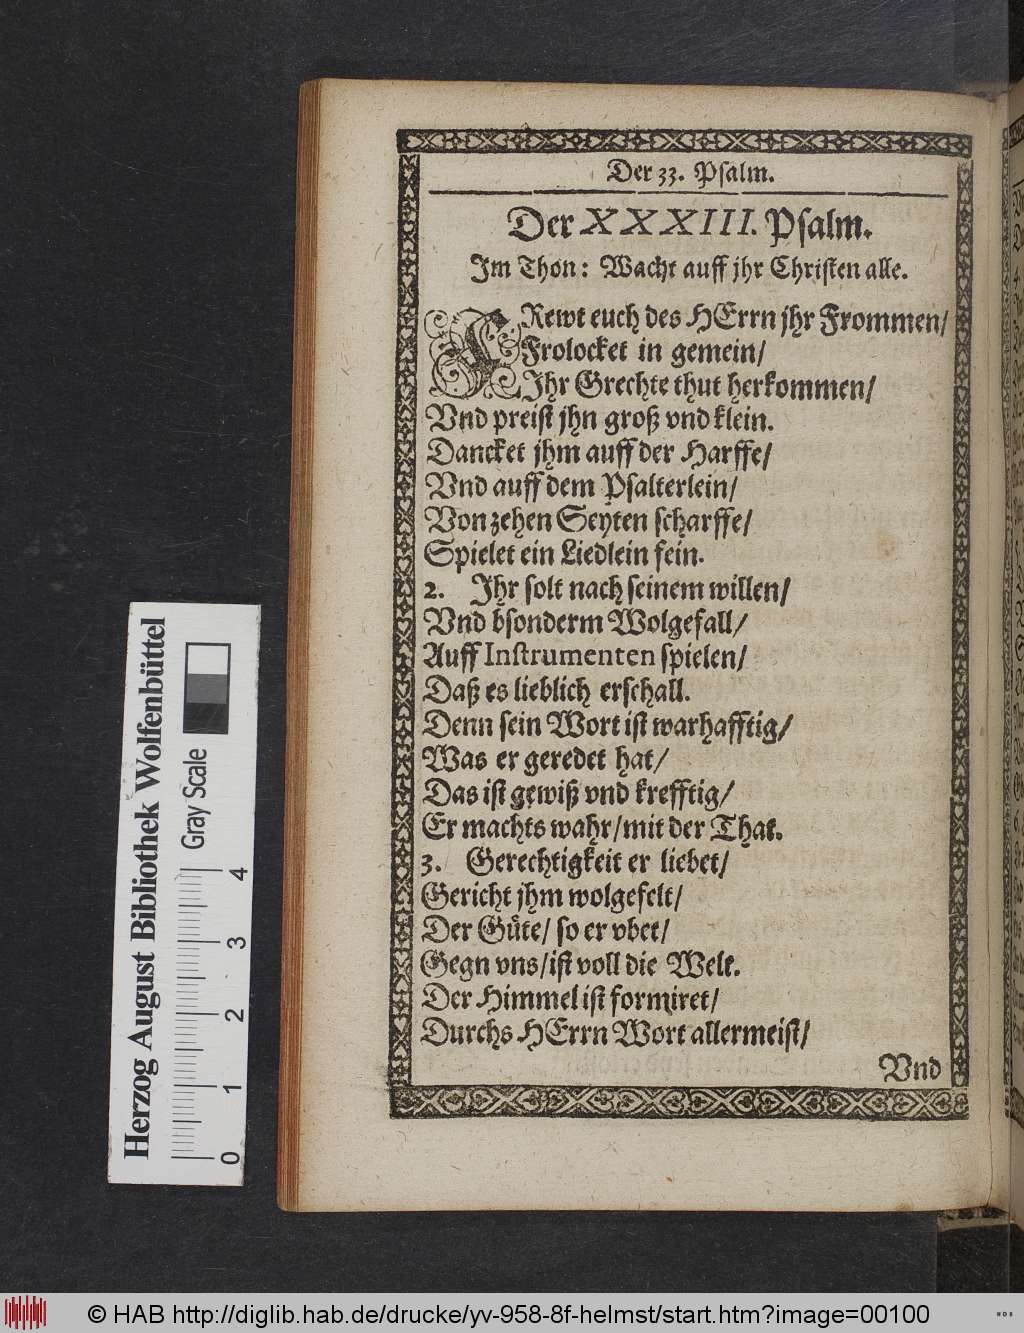 Der 33. Psalm.
Der XXXIII. Psalm.
Im Thon: Wacht auff jhr Christen alle.
FRewt euch des HErrn jhr Frommen/
Frolocket in gemein/
Ihr Grechte thut herkommen/
Vnd preist jhn groß vnd klein.
Dancket jhm auff der Harffe/
Vnd auff dem Psalterlein/
Von zehen Seyten scharffe/
Spielet ein Liedlein fein.
2. Ihr solt nach seinem willen/
Vnd bsonderm Wolgefall/
Auff Instrumenten spielen/
Daß es lieblich erschall.
Denn sein Wort ist warhafftig/
Was er geredet hat/
Das ist gewiß vnd krefftig/
Er machts wahr/ mit der That.
3. Gerechtigkeit er liebet/
Gericht jhm wolgefelt/
Der Güte/ so er vbet/
Gegn vns/ ist voll die Welt.
Der Himmel ist formiret/
Durchs HErrn Wort allermeist/
Vnd
Herzog August Bibliothek Wolfenbüttel
Gray Scale
0 1 2 3 4
© HAB http://diglib.hab.de/drucke/yv-958-8f-helmst/start.htm?image=00100